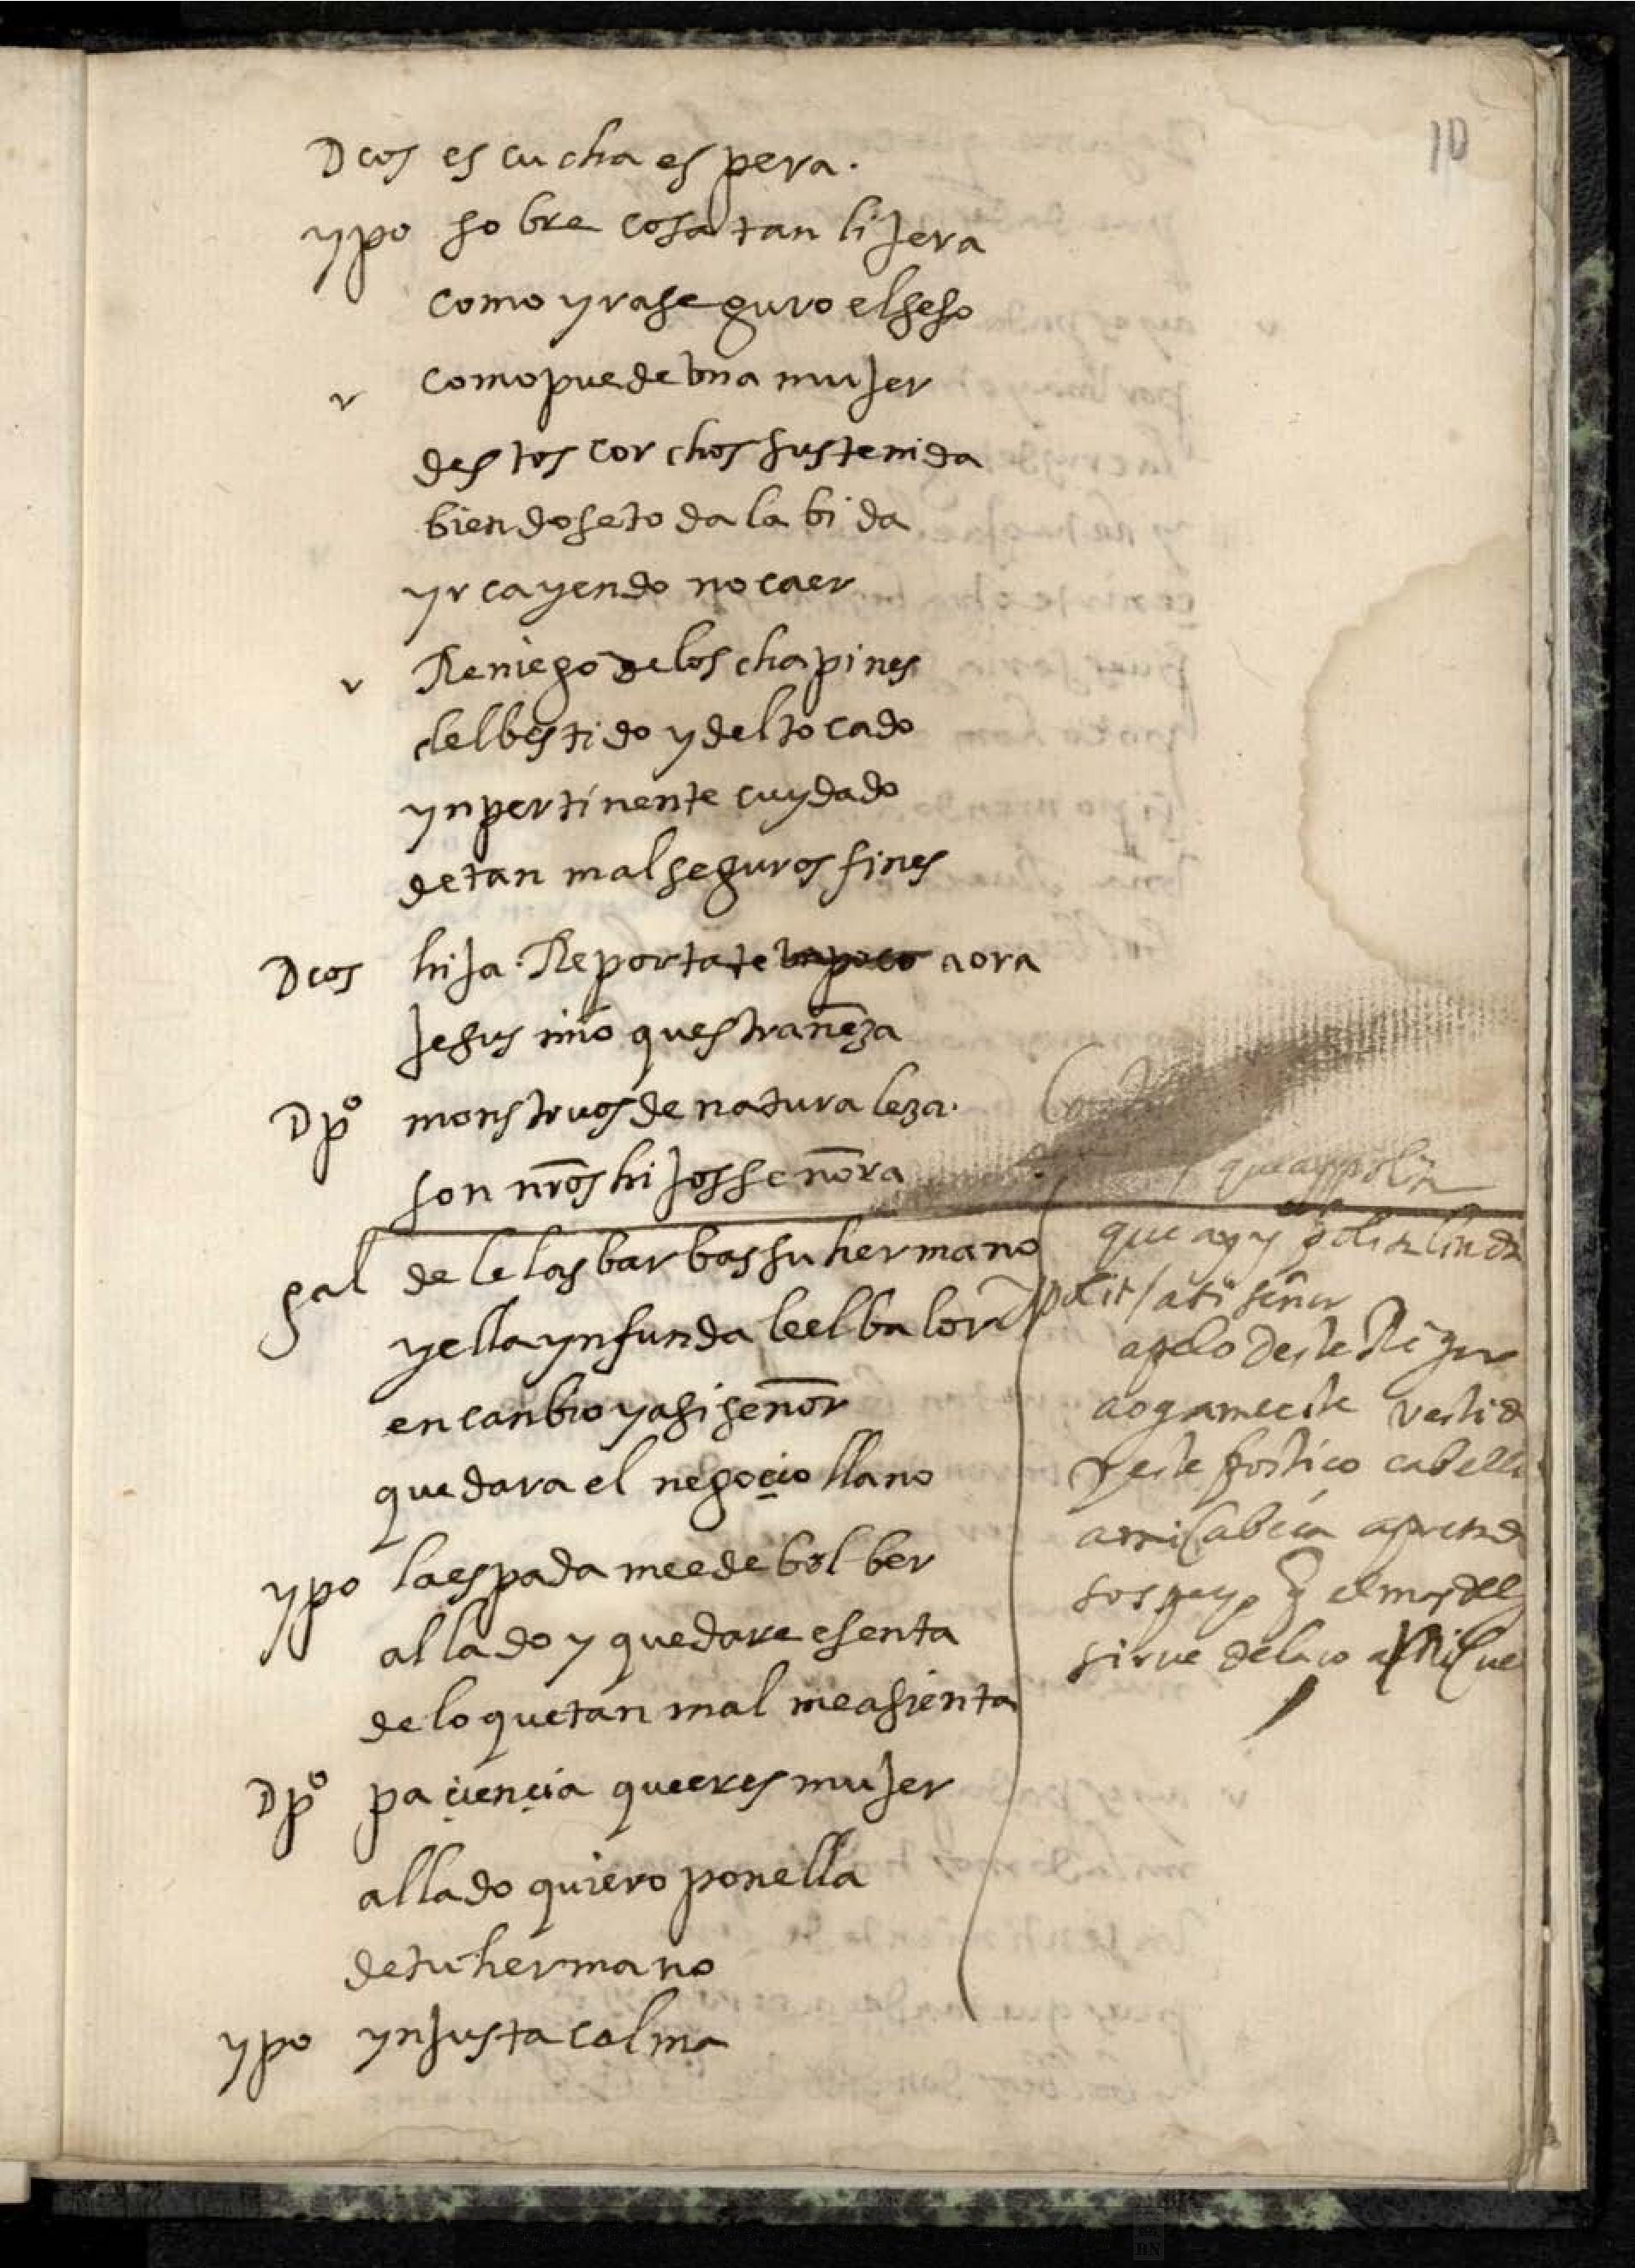 10
Dcos escucha espera.
ypo sobre cosa tan lijera
como yra seguro el seso
v como puede bna mujer
destos corchos sustenida
biendose toda la bida
yr cayendo no caer
v Reniego de los chapines
del bestido y del tocado
ynpertinente cuydado
de tan mal seguros fines
Dcos hija Reportate aora
Jesus mio questrañeza
Dpº monstruos de naturaleza.
son nros hijos señora
gal dele las barbas su hermano
y ella ynfundale el balor
en canbio y asi señor
quedara el negocio llano
ypo la espada me e de bolber
al lado y quedare esenta
de lo que tan mal me asienta
Dpº paciencia que eres mujer
al lado quiero ponella
de tu hermano
ypo ynjusta calma
que ay
que ay
/ a ti señor
apelo deste
vestid
y este postico cabell
a mi
sirve de